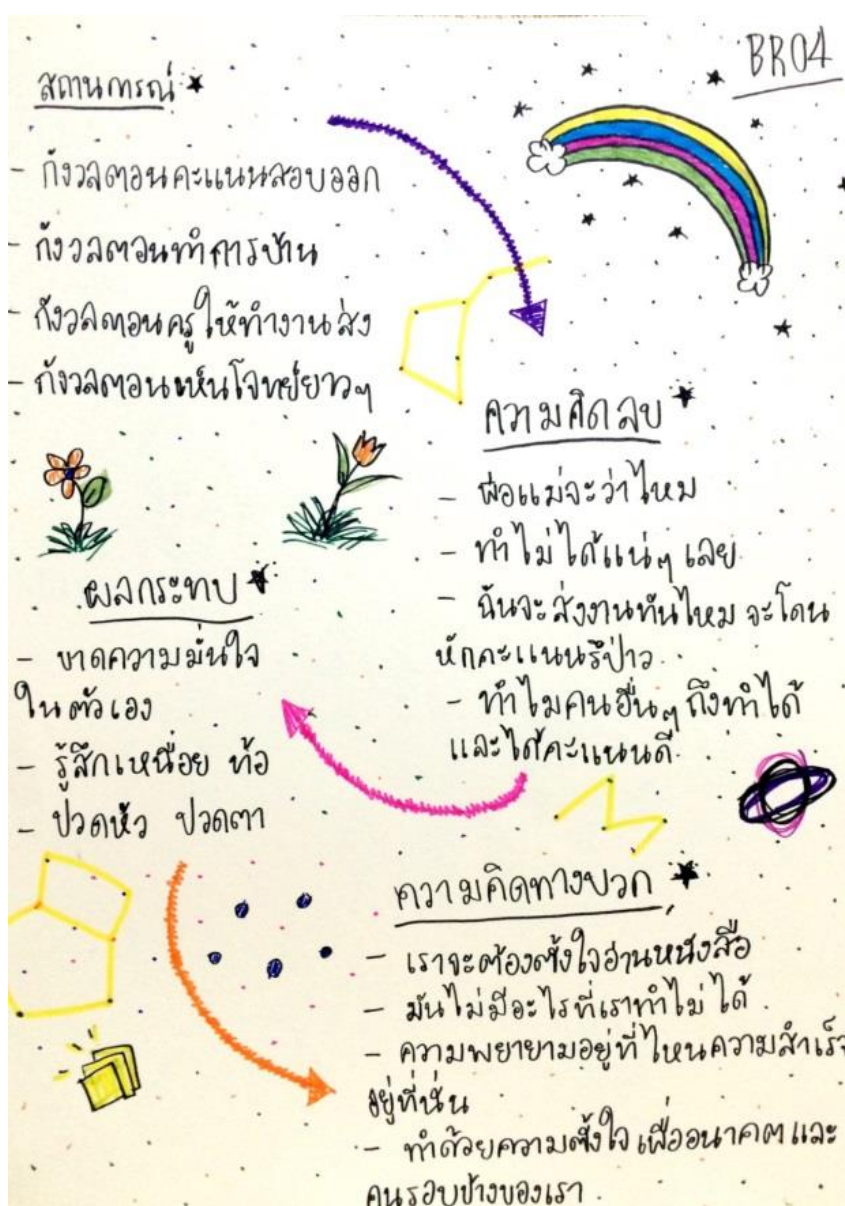 BR04
สถานการณ์
- กังวลตอนคะแนนสอบออก
- กังวลตอนทำการบ้าน
- กังวลตอนครูให้ทำงานส่ง
- กังวลตอนเห็นโจทย์ยาวๆ
ความคิดลบ
- พ่อแม่จะว่าไหม
- ทำไม่ได้แน่ๆ เลย
- ฉันจะส่งงานทันไหม จะโดน
หักคะแนนรึป่าว
- ทำไมคนอื่นๆ ถึงทำได้
และได้คะแนนดี
ผลกระทบ
- ขาดความมั่นใจ
ในตัวเอง
- รู้สึกเหนื่อย ท้อ
- ปวดหัว ปวดตา
ความคิดทางบวก
- เราจะต้องตั้งใจอ่านหนังสือ
- มันไม่มีอะไรที่เราทำไม่ได้
- ความพยายามอยู่ที่ไหนความสำเร็จ
อยู่ที่นั่น
- ทำด้วยความตั้งใจ เพื่ออนาคตและ
คนรอบข้างของเรา